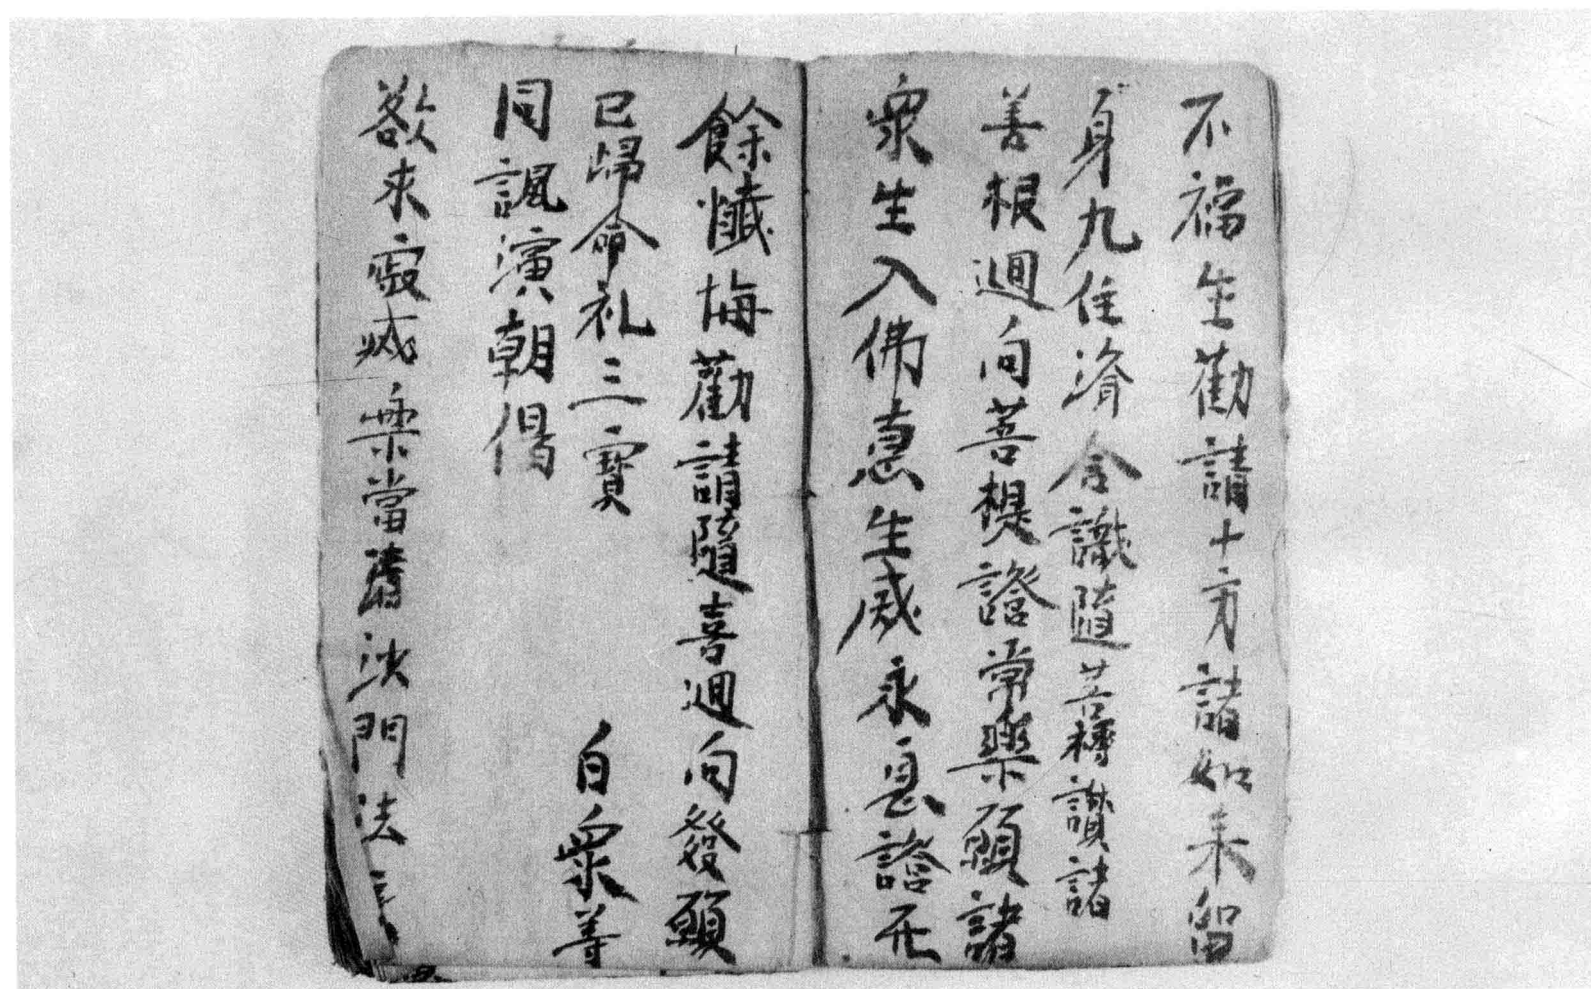 不福生勸請十方諸如来留
身九住濟含識隨菩種讃諸
善根迴向菩提證常樂願諸
衆生入佛惠生威永息證无
餘懺悔勸請隨喜迴向發願
已歸命礼三寶 白衆等
同諷演朝偈
欲求寂滅樂當 沙門法